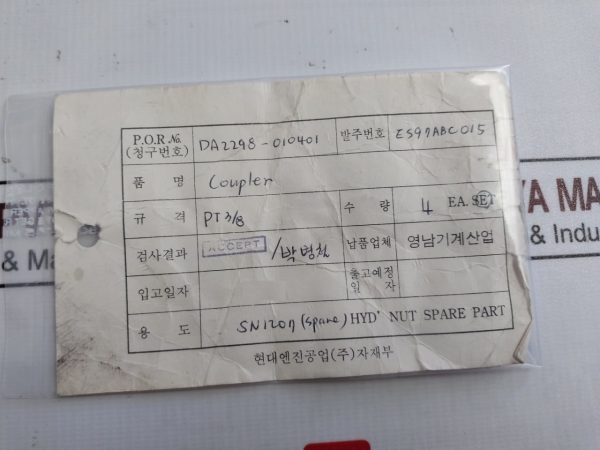 P.O.R.№. (청구번호) DA2298-010401 발주번호 ES97ABC015
품 명 Coupler
규 격 PT 3/8 수 량 4 EA. SET
검사결과 ACCEPT /박병철 납품업체 영남기계산업
입고일자 출고예정일자
용 도 SN1207 (spare) HYD' NUT SPARE PART
현대엔진공업(주)자재부
YA MA
& Ma
& Indu